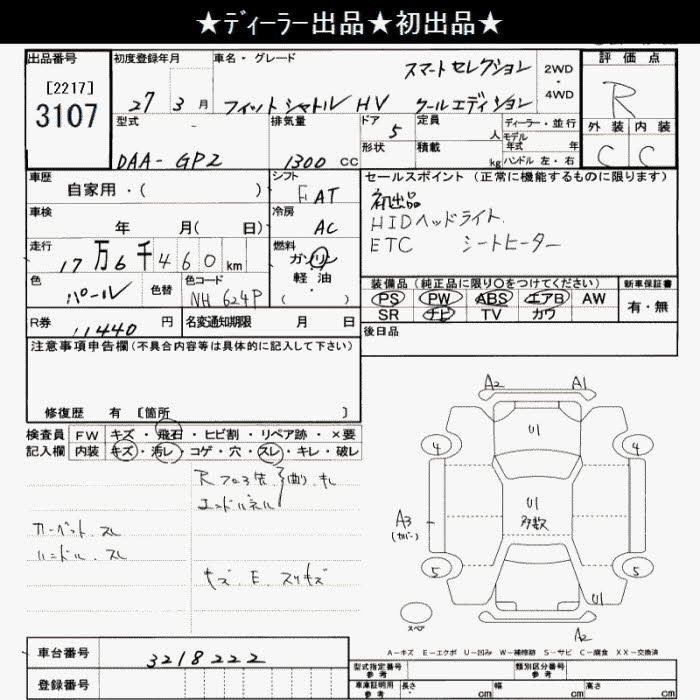 ★ディーラー出品★初出品★
出品番号
[2217]
3107
初度登録年月
27 3月
車名・グレード
フィットシャトルHV
スマートセレクション
クールエディション
2WD
・
4WD
評価点
R
外装 内装
C C
型式
DAA-GP2
排気量
1300 CC
ドア
5
形状
定員
人
積載
kg
ディーラー・並行
モデル
年式 年
ハンドル 左・右
車歴
自家用・( )
シフト
FAT
車検
年 月( 日)
冷房
AC
走行
17万6千460km
燃料
ガソリン
軽油
( ・ )
色
パール
色替
色コード
NH 624P
R券
11440 円
名変通知期限 月 日
セールスポイント(正常に機能するものに限ります)
初出品
HIDヘッドライト.
ETC シートヒーター
装備品(純正品に限り○をつけてください)
PS PW ABS エアB AW
SR ナビ TV カワ
新車保証書
有・無
後日品
注意事項申告欄(不具合内容等は具体的に記入して下さい)
修復歴 有 [箇所 ]
検査員
記入欄
FW キズ・飛石・ヒビ割・リペア跡・×要
内装 キズ・汚レ・コゲ・穴・スレ・キレ・破レ
Rフロア先
エンドパネル
曲り.キレ
カーペット.スレ
ハンドル.スレ
キズ.E.スリキズ
A2 A1
U1
4 4
A3
(カバー)
U1
多数
5 5
U1
スペア
A2
A-キズ E-エクボ U-凹み W-補修跡 S-サビ C-腐食 XX-交換済
車台番号
3218222
登録番号
型式指定番号
参考
類別区分番号
参考
車庫証明用
参考
長さ cm
幅 cm
高さ cm